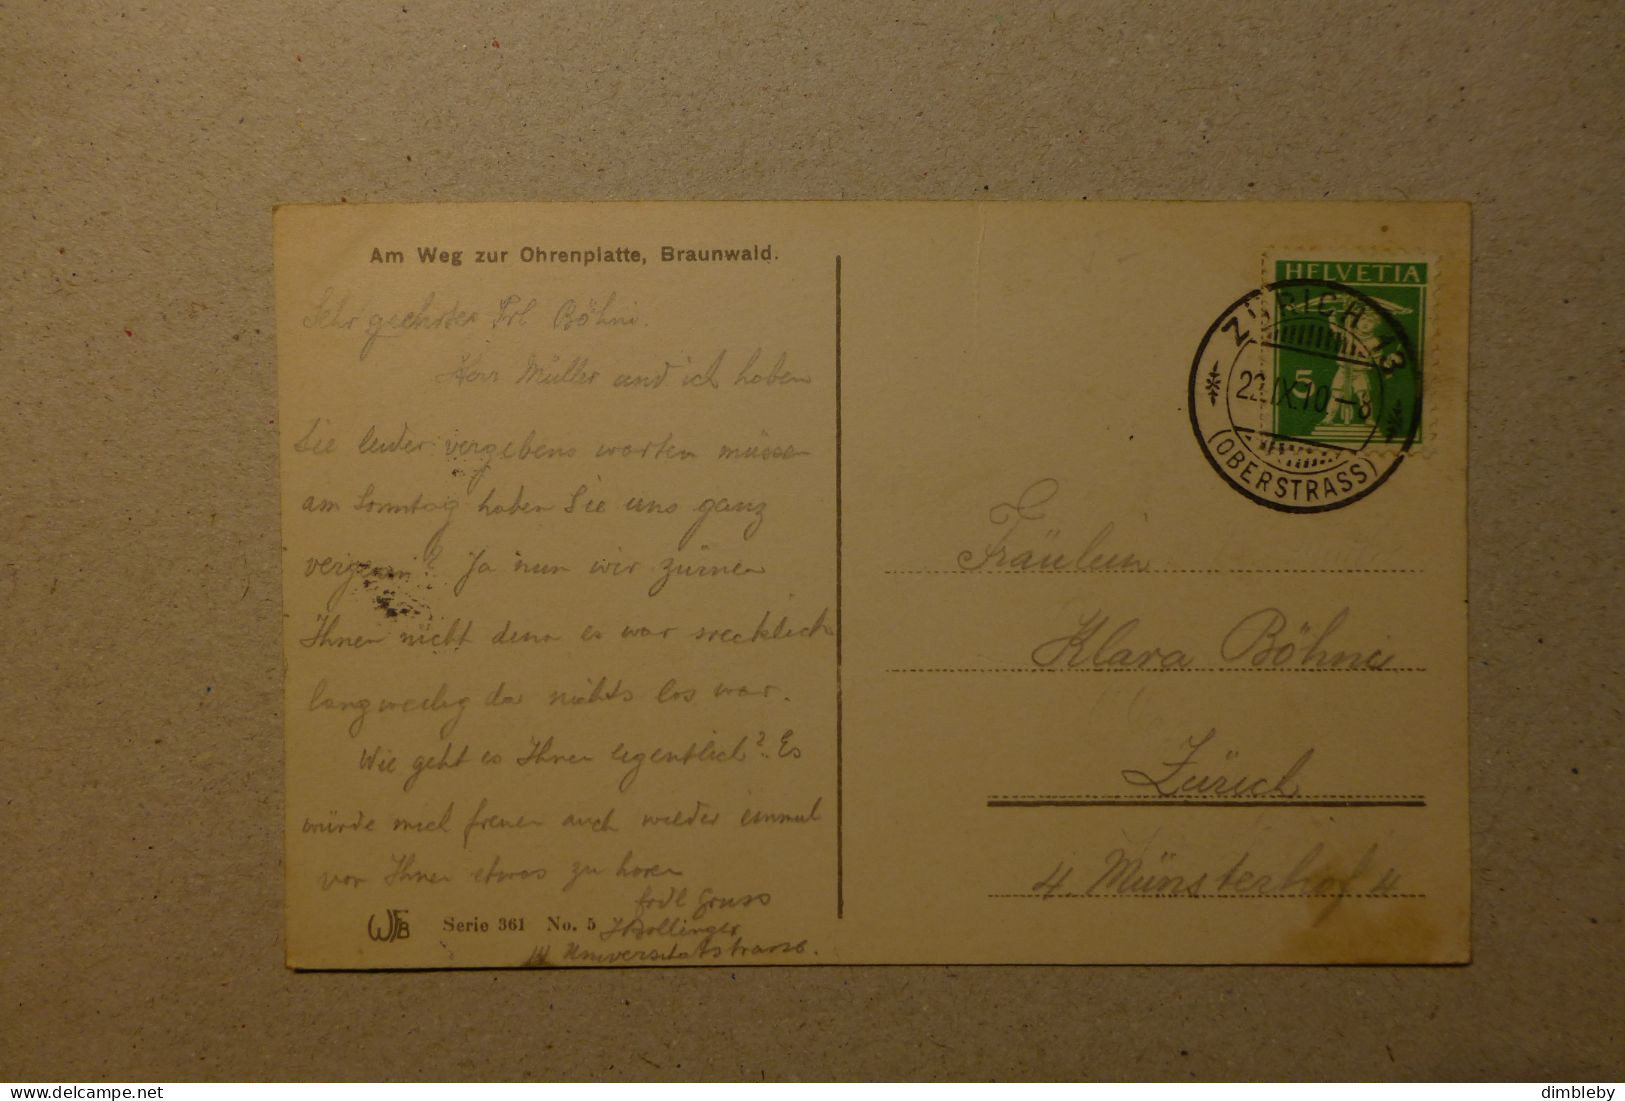 Am Weg zur Ohrenplatte, Braunwald.
Sehr geehrtes Frl Böhni.
Herr Müller und ich haben
Sie leider vergebens warten müssen
am Sonntag haben Sie uns ganz
vergessen? Ja nun wir zürnen
Ihnen nicht denn es war srecklich
langweilig da nichts los war.
Wie geht es Ihnen eigentlich? Es
würde mich freuen auch wieder einmal
von Ihnen etwas zu hören
frdl Gruss
JBollinger
Universitätstrasse.
WFB Serie 361 No. 5
HELVETIA
5
ZÜRICH 13
22.IX.10.-8
(OBERSTRASS)
Fräulein
Klara Böhni
Zürich
4. Münsterhof 4
delcampe.net
dimbleby